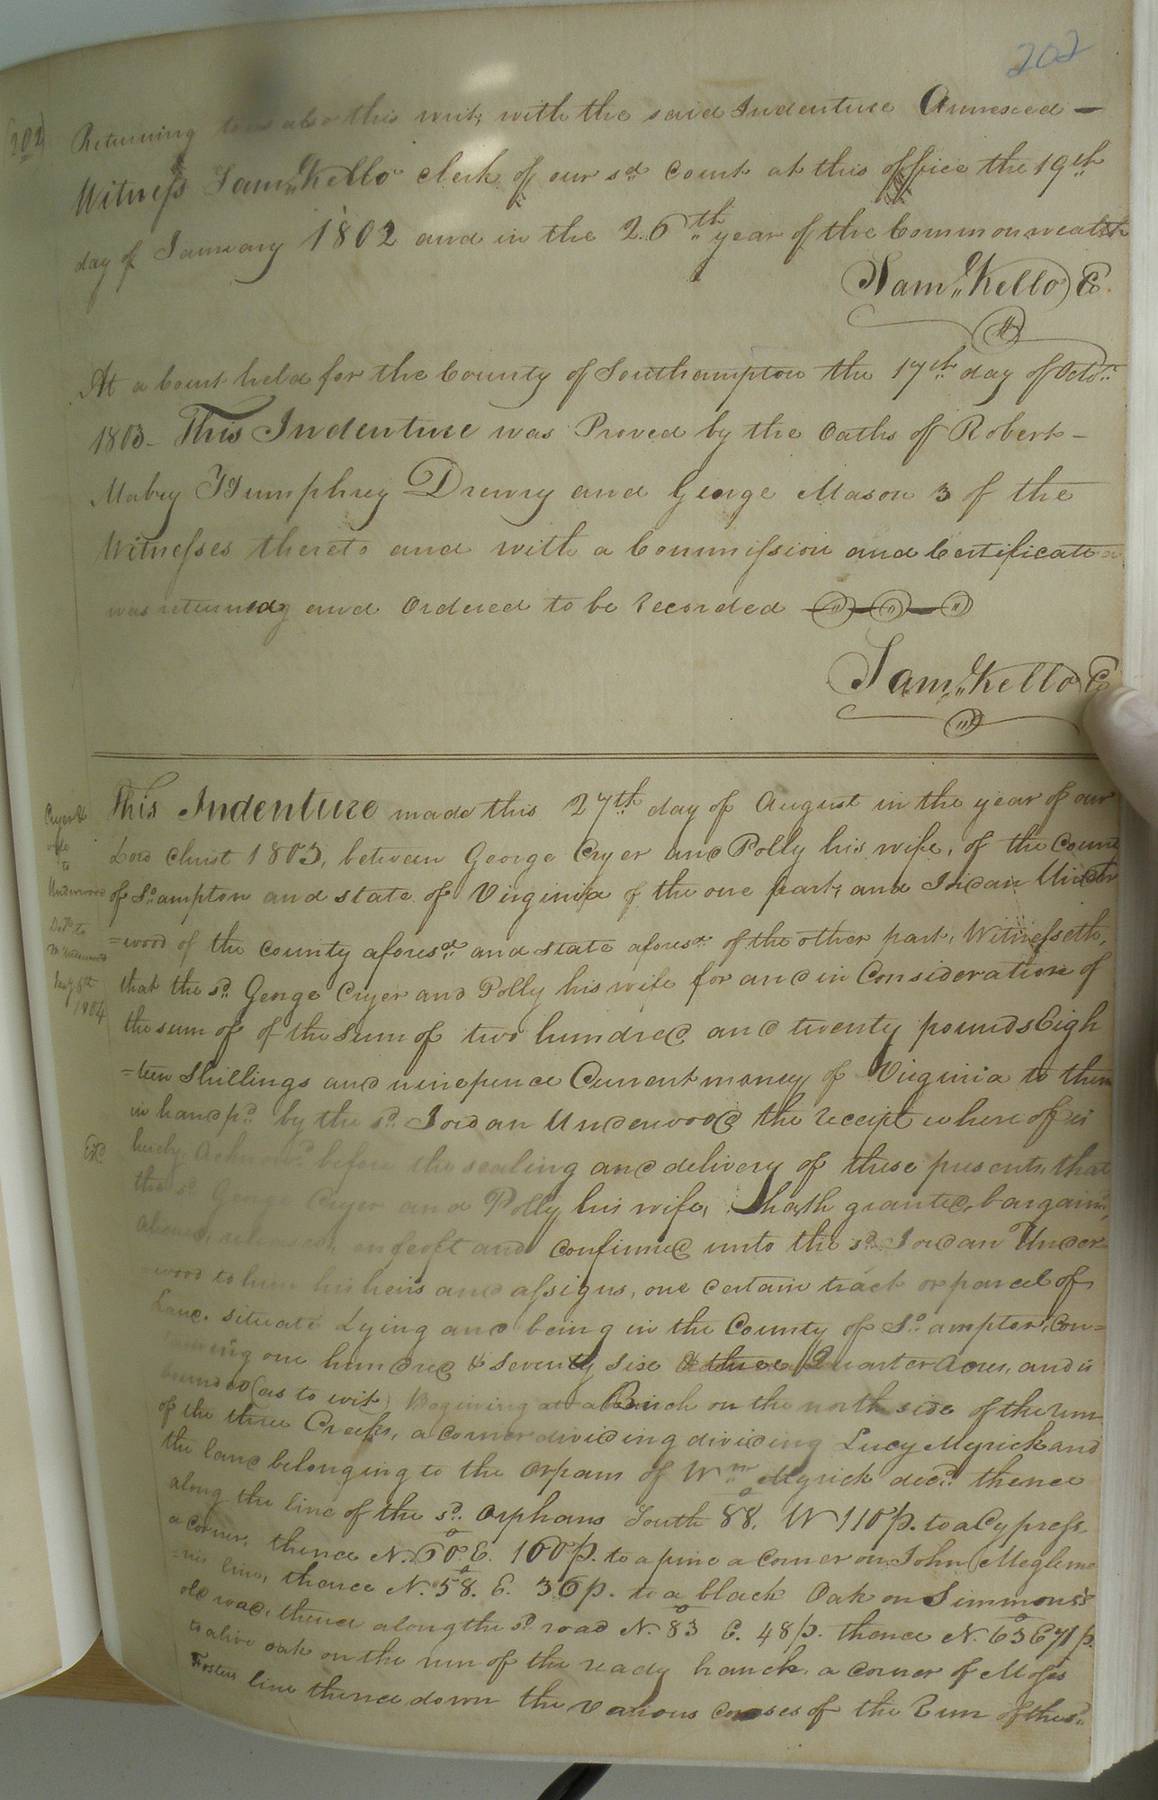 202
(202)
Returning to us also this writ, with the said Indenture Annexed —
Witness Saml. Kello clerk of our sd. Court at this office the 19th
day of January 1802 and in the 26th year of the Commonwealth
Saml. Kello C.
At a Court held for the County of Southampton the 17th day of Octo.
1803 - This Indenture was Proved by the Oaths of Robert -
Mabry Humphrey Drewry and George Mason 3 of the
Witnesses thereto and with a Commission and Certificate
was returned and Ordered to be recorded
Saml. Kello C.
Cryer &
wife
to
Underwood
to
Underwood
1804
Exd
This Indenture made this 27th day of August in the year of our
Lord Christ 1803, between George Cryer and Polly his wife, of the County
of So.ampton and state of Virginia of the one part, and Jordan Under
=wood of the county aforesd. and state aforesd. of the other part, Witnesseth,
that the sd. George Cryer and Polly his wife for and in Consideration of
the sum of of the sum of two hundred and twenty pounds Eigh
=teen Shillings and ninepence Current money of Virginia to them
in hand pd. by the sd. Jordan Underwood the receipt where of is
hereby Acknowd. before the sealing and delivery of these presents, that
the sd. George Cryer and Polly his wife, hath granted, bargaind,
aliened, released, enfeoft and confirmed unto the sd. Jordan Under
wood to him his heirs and assigns, one certain tract or parcel of
Land, situate Lying and being in the County of So.ampton, Con=
=taining one hundred & seventy six & three Quarter Acres, and is
bounded (as to wit) Begining at a Birch on the north side of the run
of the three Creeks, a corner dividing dividing Lucy Myrick and
the land belonging to the orpans of Wm. Myrick decd. thence
along the line of the sd. Orphans South 88. W 110 p. to a Cypress
a corner, thence N. 60° E. 100 p. to a pine a corner on John Meglem
=ris line, thence N. 58. E. 36 p. to a black Oak on Simmons's
old road, thence along the sd. road N. 83 E. 48 p. thence N. 63 E 71 p.
to alive oak on the run of the ready branch, a corner of Moses
Fosters line thence down the various courses of the Run of the sd.